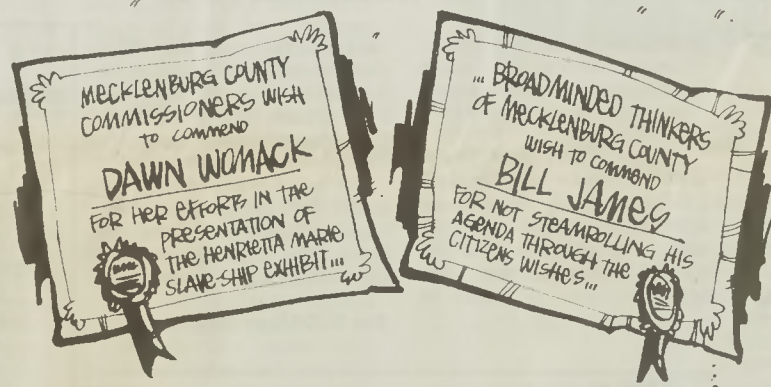 MECKLENBURG COUNTY
COMMISSIONERS WISH
TO COMMEND
DAWN WOMACK
FOR HER EFFORTS IN THE
PRESENTATION OF
THE HENRIETTA MARIE
SLAVE SHIP EXHIBIT...
... BROADMINDED THINKERS
OF MECKLENBURG COUNTY
WISH TO COMMEND
BILL JAMES
FOR NOT STEAMROLLING HIS
AGENDA THROUGH THE
CITIZENS WISHES...